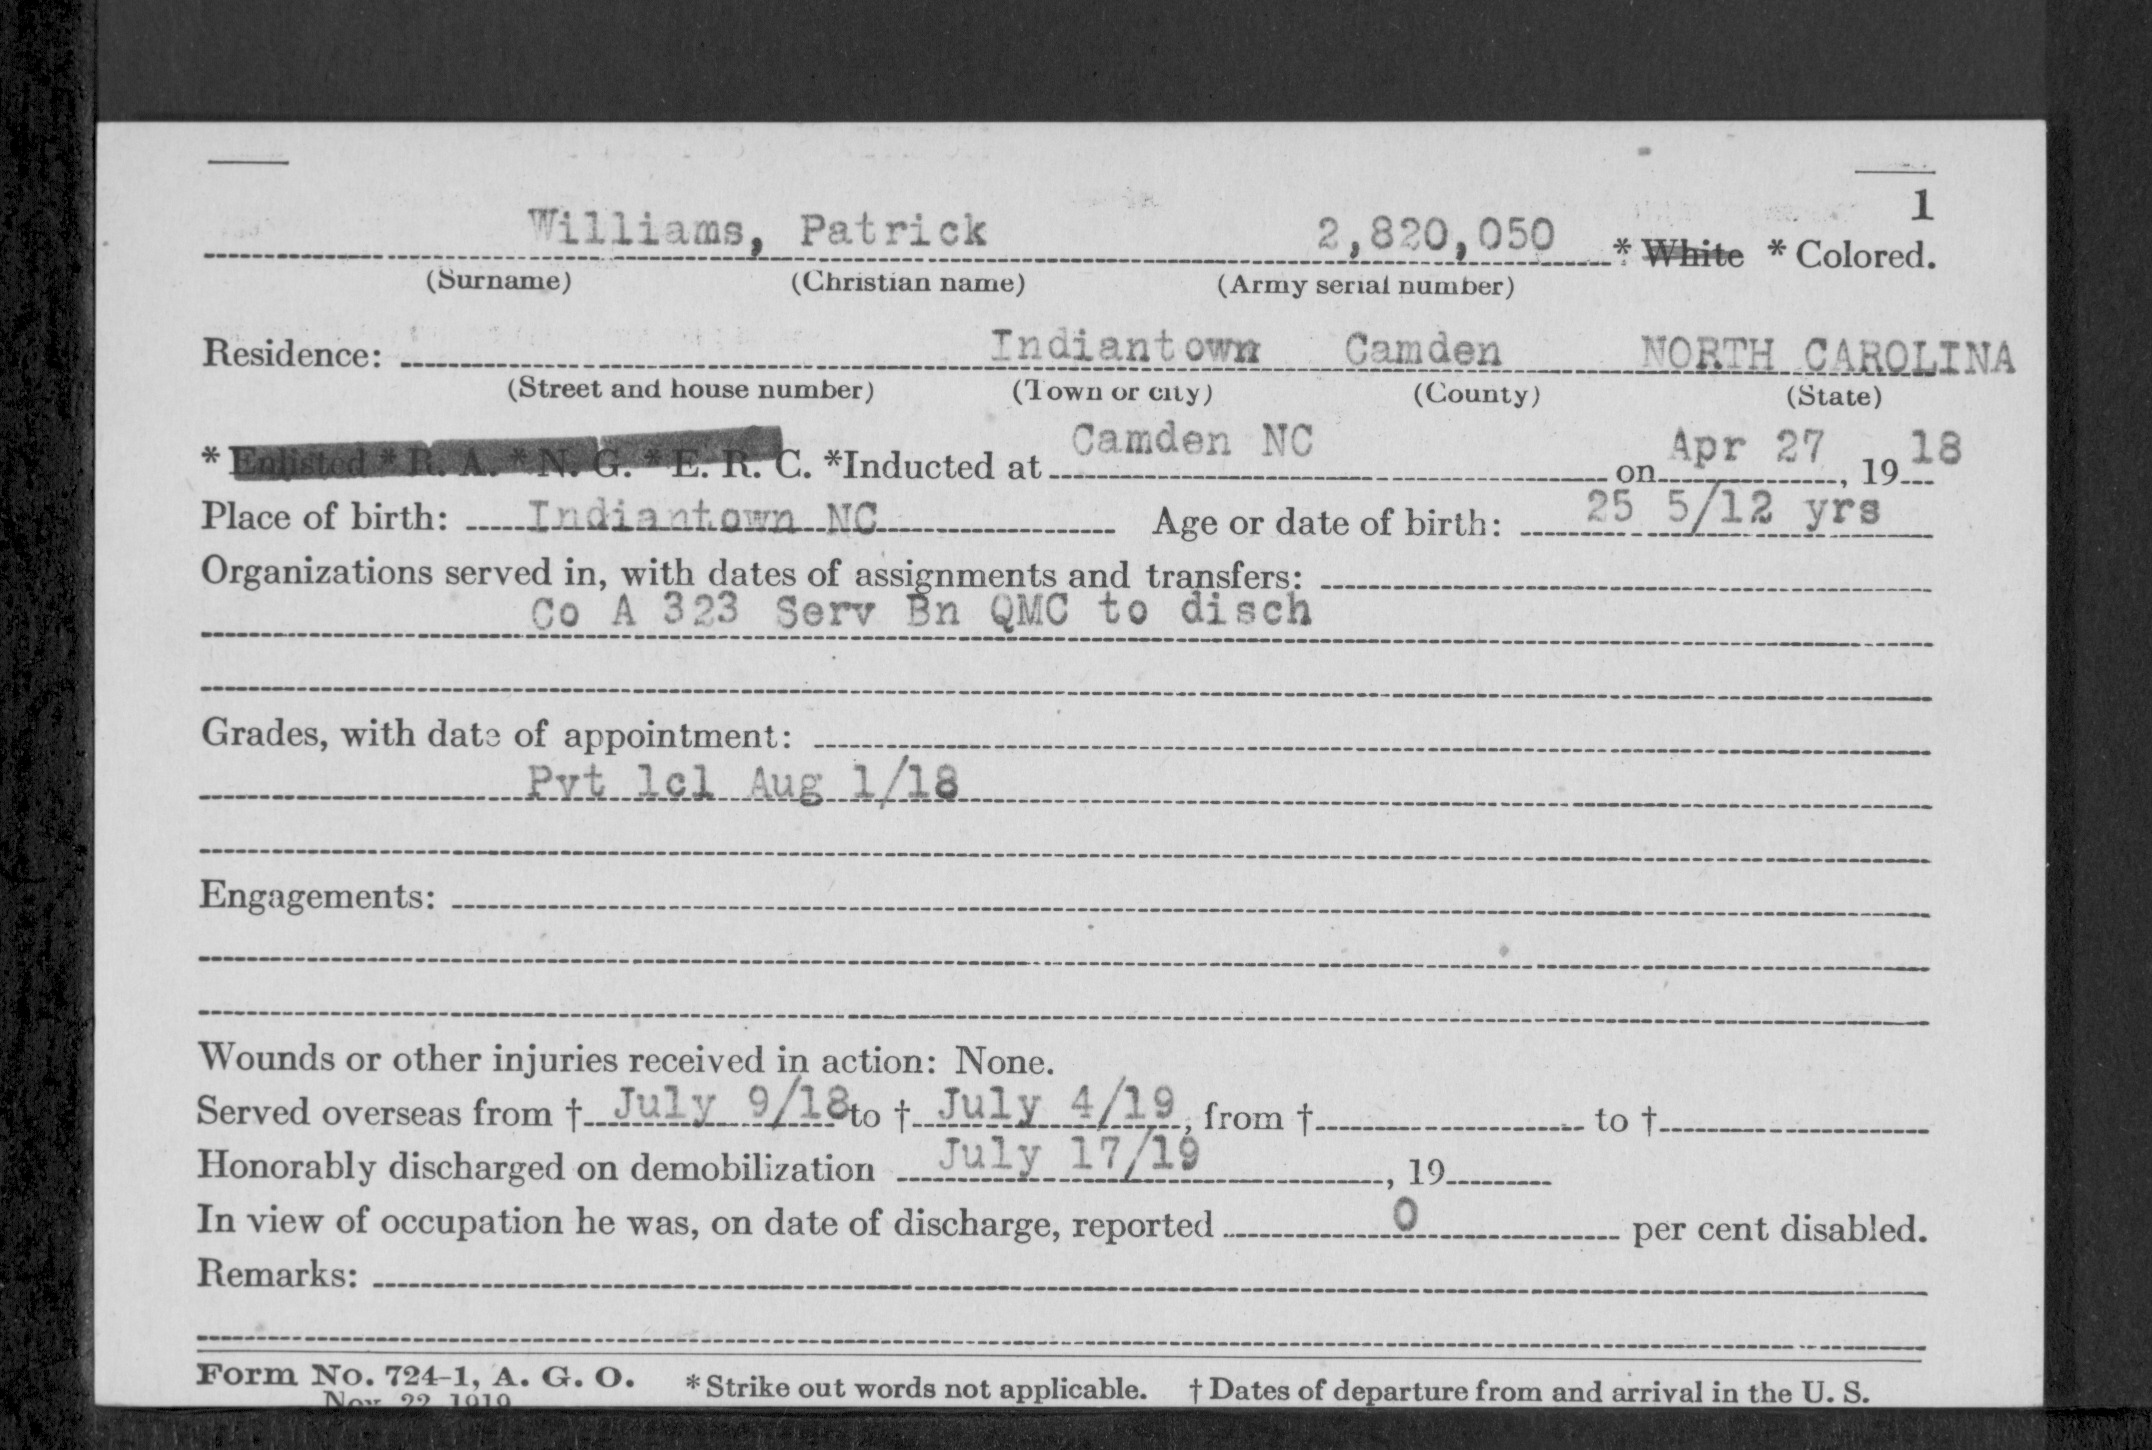 1
Williams, Patrick 2,820,050 * White * Colored.
(Surname) (Christian name) (Army serial number)
Residence: Indiantown Camden NORTH CAROLINA
(Street and house number) (Town or city) (County) (State)
* Enlisted * R. A. * N. G. * E. R. C. *Inducted at Camden NC on Apr 27, 19 18
Place of birth: Indiantown NC Age or date of birth: 25 5/12 yrs
Organizations served in, with dates of assignments and transfers:
Co A 323 Serv Bn QMC to disch
Grades, with date of appointment:
Pvt 1cl Aug 1/18
Engagements:
Wounds or other injuries received in action: None.
Served overseas from † July 9/18 to † July 4/19, from † to †
Honorably discharged on demobilization July 17/19, 19
In view of occupation he was, on date of discharge, reported 0 per cent disabled.
Remarks:
Form No. 724-1, A. G. O. * Strike out words not applicable. † Dates of departure from and arrival in the U. S.
Nov. 22, 1919